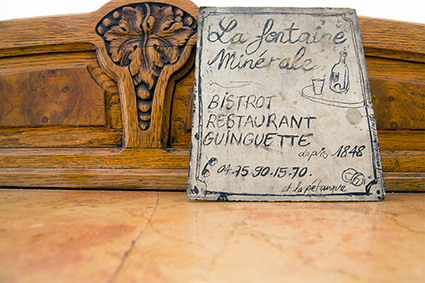 La fontaine
Minérale
BISTROT
RESTAURANT
GUINGUETTE
depuis 1848
04.75.90.15.70.
et la pétanque